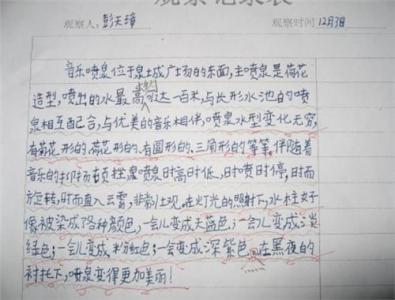 观察记录表
观察人:彭天璋 观察时间 12月3日
音乐喷泉位于泉城广场的东面,主喷泉是荷花
造型,喷出的水最高可达一百米,与长形水池的喷
泉相互配合,与优美的音乐相伴,喷泉水型变化无穷,
有菊花形的、荷花形的、有圆形的、三角形的等等。伴随着
音乐的抑扬顿挫,喷泉时高时低、时喷时停,时而
方旋转,时而直入云霄,非常壮观。在灯光的照射下,水柱好
像被染成了各种颜色,一会儿变成天蓝色;一会儿变成淡
绿色;一会儿变成粉红色;一会变成深紫色。在黑夜的
衬托下,喷泉变得更加美丽!